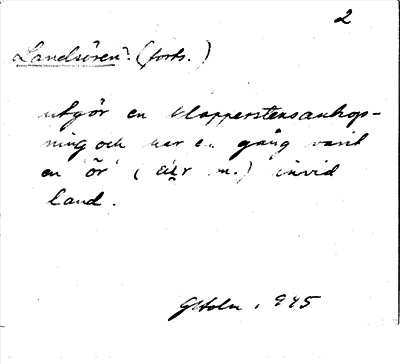 2
Landsören? (forts.)
utgör en klapperstensanhop-
ning och har en gång varit
en ör ( m.) invid
land.
1945